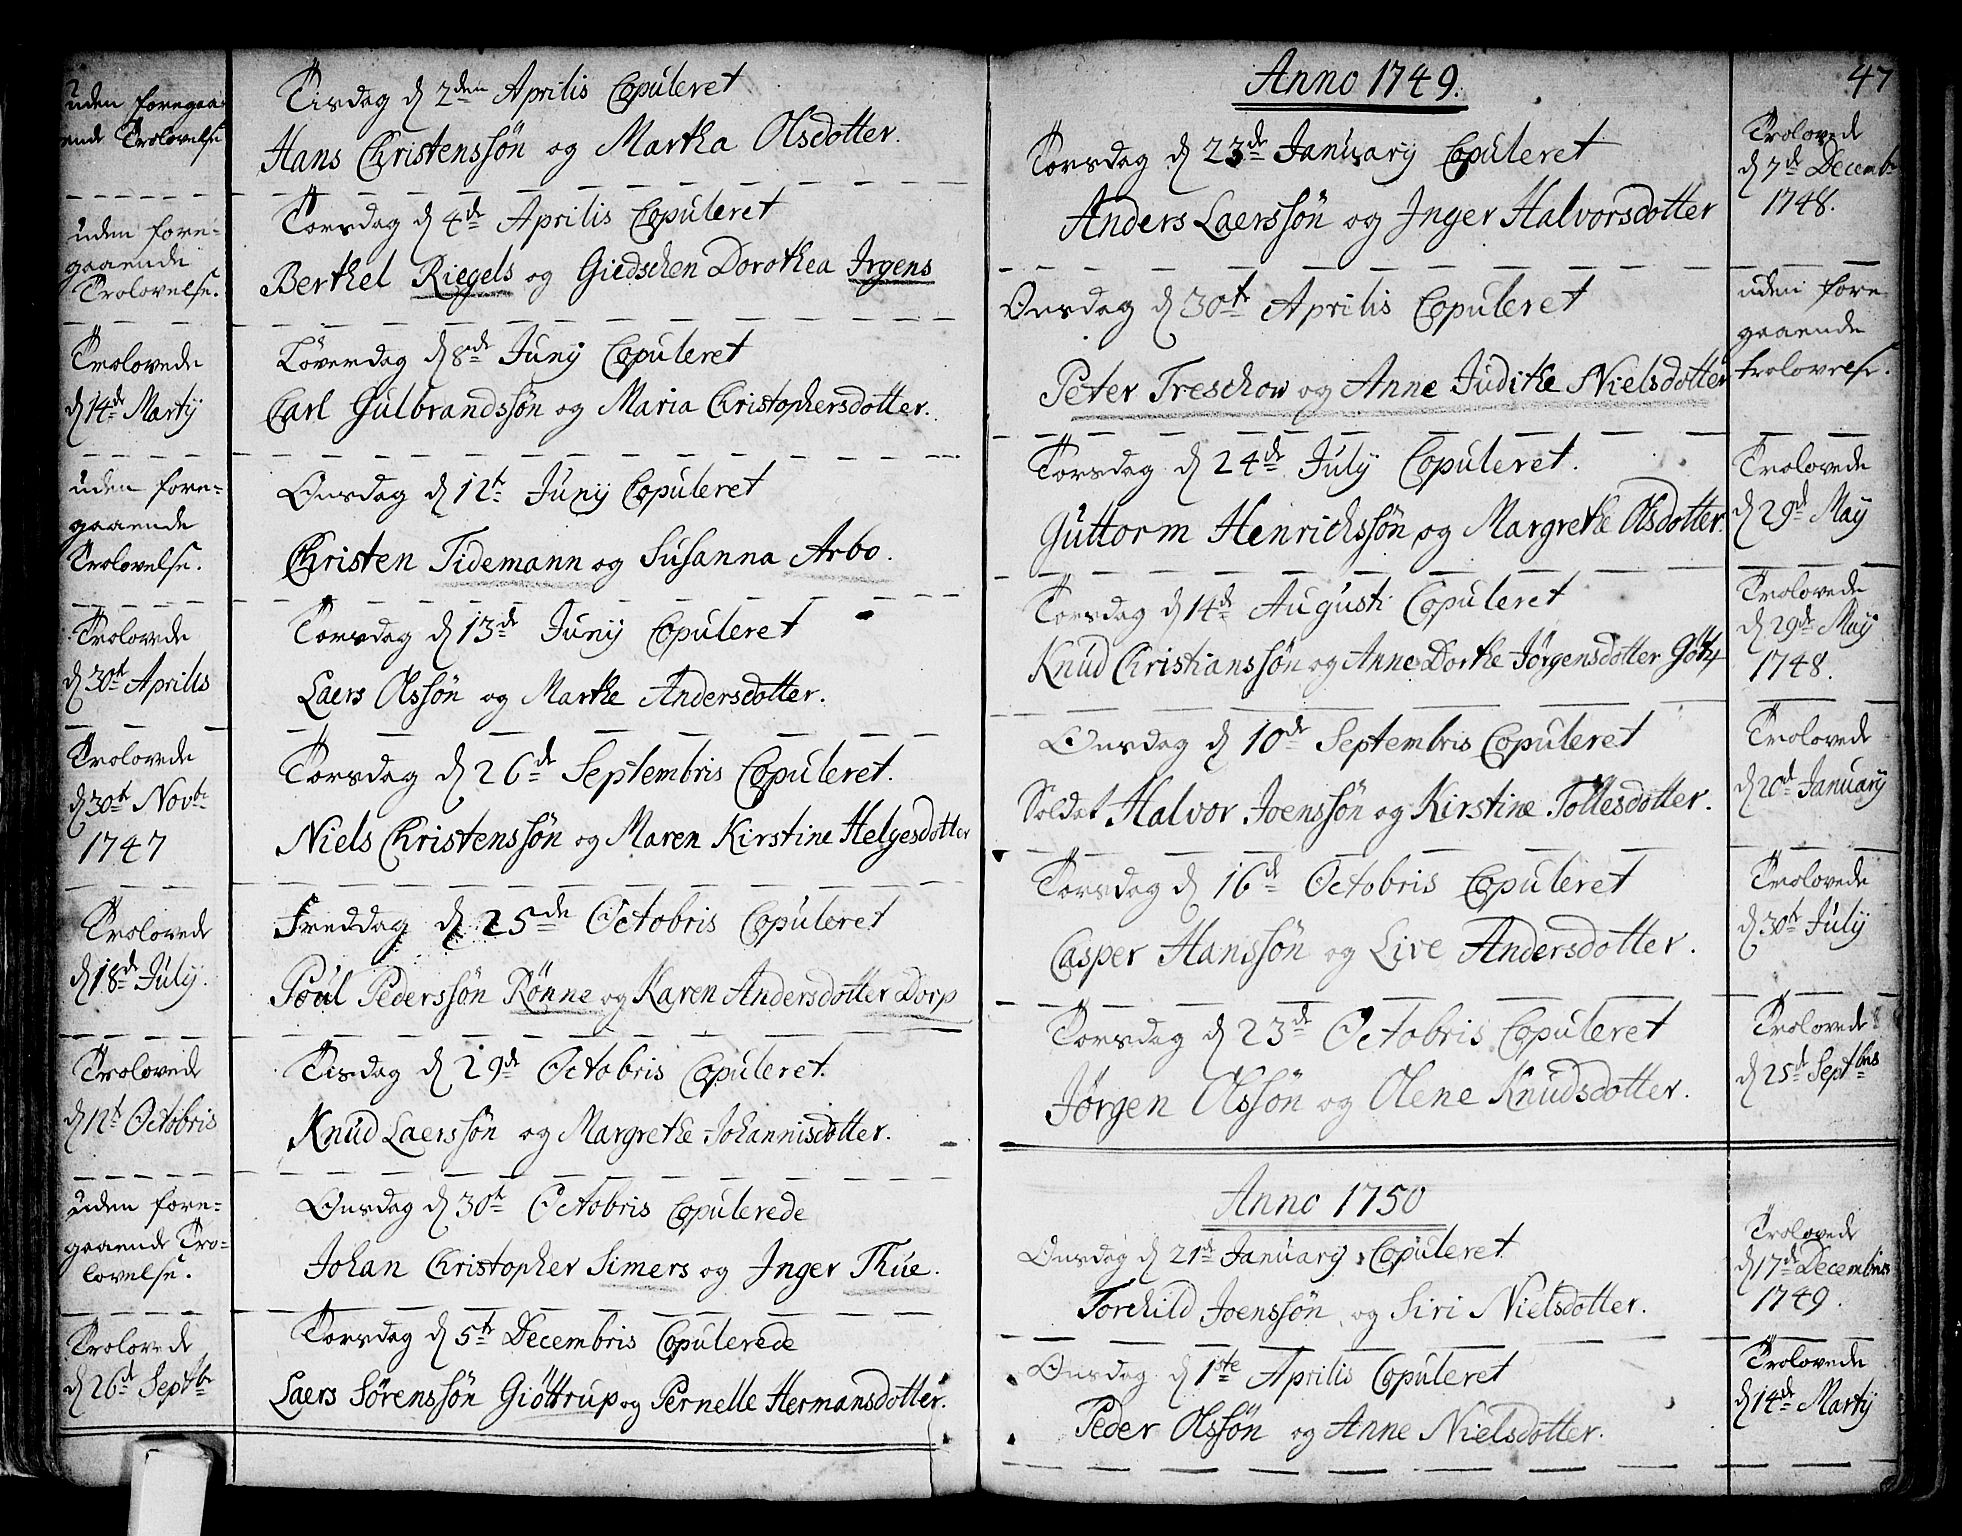 uden foregaa-
ende Trolovelse
Tisdag d 2den Aprilis Copuleret
Hans Christenssön og Martha Olsdotter.
uden fore-
gaaende
Trolovelse.
Torsdag d 4de Aprilis Copuleret
Berthel Riegels og Giedschen Dorothea Irgens
Trolovede
d 14de Martij
Löverdag d 8de Junij Copuleret
Carl Gulbrandssön og Maria Christophersdotter.
uden fore-
gaaende
Trolovelse.
Onsdag d 12te Junij Copuleret
Christen Tidemann og Susanna Arbo.
Trolovede
d 30te Aprilis
Torsdag d 13de Junij Copuleret
Laers Olssön og Marthe Andersdotter.
Trolovede
d 30te Novbr
1747
Torsdag d 26de Septembris Copuleret.
Niels Christenssön og Maren Kirstine Helgesdotter
Trolovede
d 18de July.
Freddag d 25de Octobris Copuleret
Poul Pederssön Rönne og Karen Andersdotter Dorp
Trolovede
d 12te Octobris
Tisdag d 29de Octobris Copuleret.
Knud Laerssön og Margrethe Johannisdotter.
uden fore-
gaaende Tro-
lovelse.
Onsdag d 30te Octobris Copulerede
Johan Christopher Simers og Inger Thue.
Trolovede
d 26de Septbr
Torsdag d 5te Decembris Copulerede
Laers Sörenssön Giöttrup og Pernelle Hermansdotter.
47
Anno 1749.
Torsdag d 23de January Copuleret
Anders Laerssön og Inger Halvorsdotter
Trolovede
d 7de Decembr
1748.
Onsdag d 30te Aprilis Copuleret
Peter Treschow og Anne Judithe Nielsdotter
uden fore
gaaende
trolovelse.
Torsdag d 24de July Copuleret.
Guttorm Henrichssön og Margrethe Olsdotter.
Trolovede
d 29de Maij
Torsdag d 14de Augusti Copuleret
Knud Christianssön og Anne Dorthe Jörgensdotter Götz
Trolovede
d 29de Maij
1748.
Onsdag d 10de Septembris Copuleret
Soldat Halvor Joenssön og Kirstine Tollesdotter.
Trolovede
d 20de Januarij
Torsdag d 16de Octobris Copuleret
Casper Hanssön og Live Andersdotter.
Trolovede
d 30te July
Torsdag d 23de Octobris Copuleret
Jörgen Olssön og Olene Knudsdotter.
Trolovede
d 25de Septbris
Anno 1750
Onsdag d 21de January Copuleret
Torchild Joenssön og Siri Nielsdotter.
Trolovede
d 17de Decembris
1749.
Onsdag d 1ste Aprilis Copuleret
Peder Olssön og Anne Nielsdotter.
Trolovede
d 14de Martij